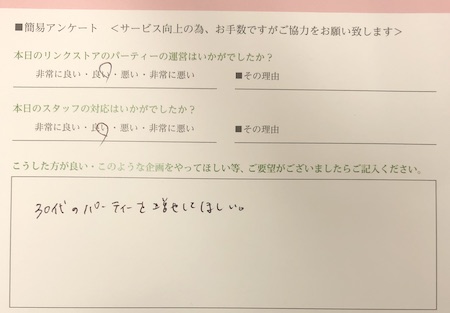 ■簡易アンケート ＜サービス向上の為、お手数ですがご協力をお願い致します＞
本日のリンクストアのパーティーの運営はいかがでしたか？
非常に良い・良い・悪い・非常に悪い ■その理由
本日のスタッフの対応はいかがでしたか？
非常に良い・良い・悪い・非常に悪い ■その理由
こうした方が良い・このような企画をやってほしい等、ご要望がございましたらご記入ください。
30代のパーティーを増やしてほしい。